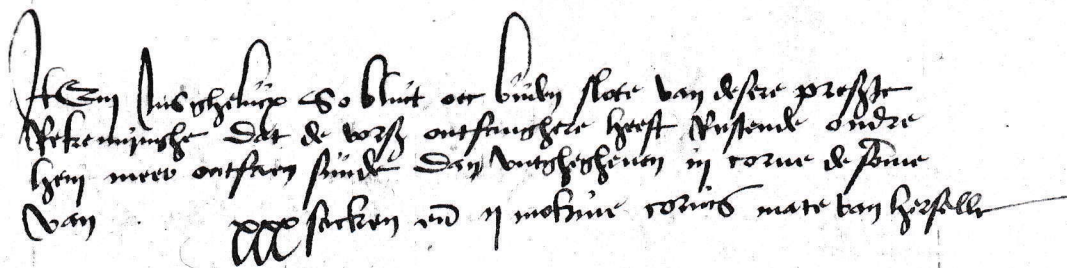 Item Insghelycx So blyct oec biden slote van desere presẽte
Rekenynghe Dat de vors ontfanghere heeft Rustende ondre
hem meer ontfaen sijnde Dan wtghegheven in corne de sõme
van xxx sacken en̄ ij mokene corens mate van herselle